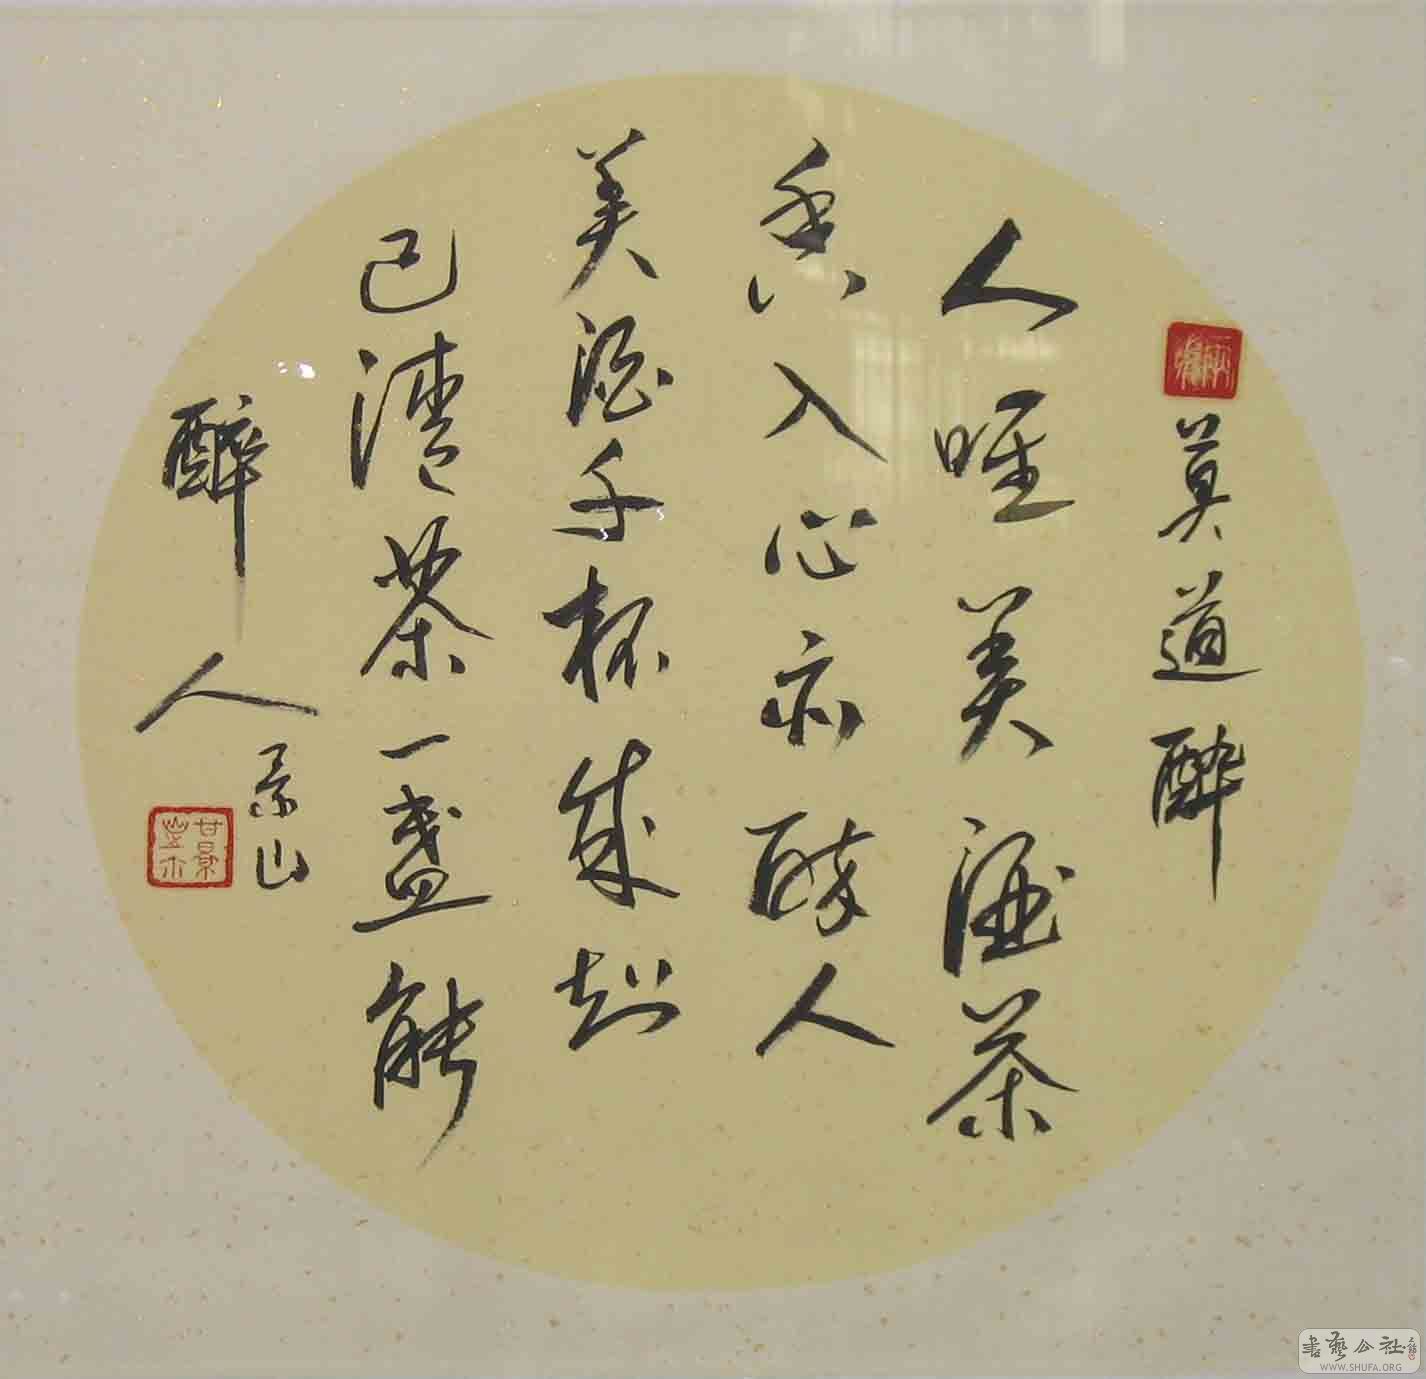 莫道醉
人唯美酒茶
香入心亦醉人
美酒千杯成知
己清茶一盏能
醉人
景山
書藝公社
WWW.SHUFA.ORG